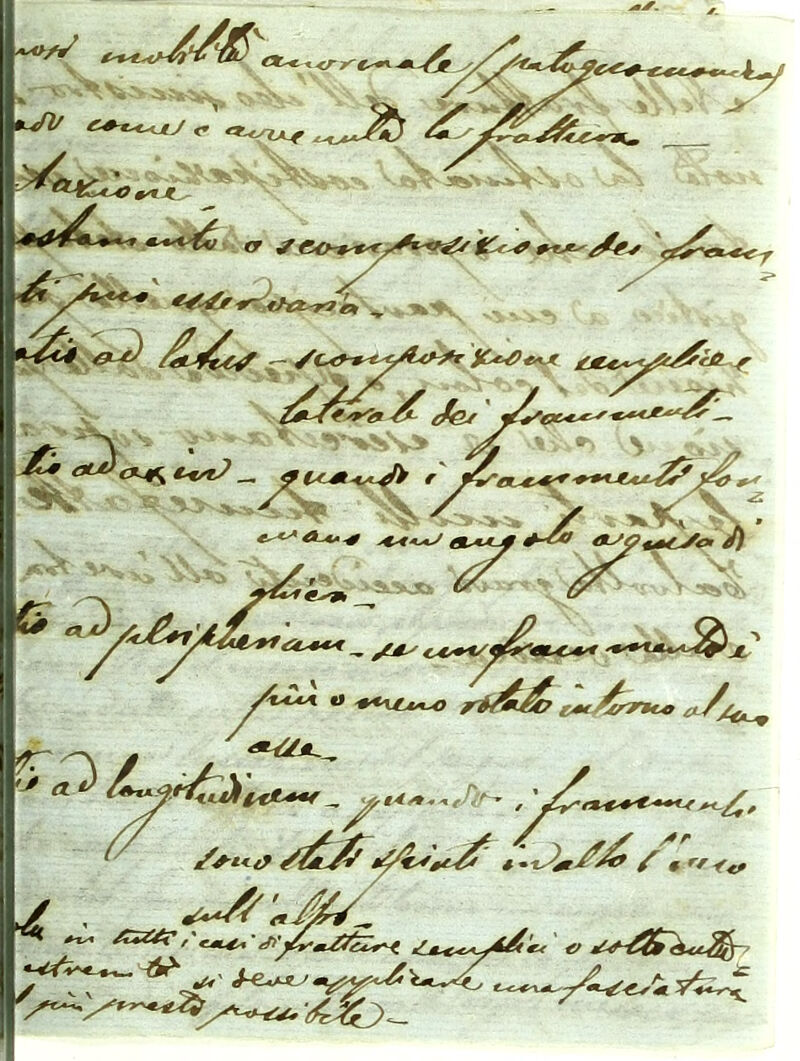 nosi mobilità anormale (patognomonica)
ado come è avvenuta la frattura —
tazione
ostamento o scomposizione dei fram=
ti può esser varia -
atio ad latus - scomposizione semplice e
laterale dei frammenti -
tio ad axin - quando i frammenti for=
mano un angolo a guisa di
ghiera -
tio ad peripheriam - se un frammento è
più o meno rotato intorno al suo
asse -
tio ad longitudinem - quando i frammenti
sono stati spinti in alto l'uno
sull'altro
ola in tutti i casi di fratture semplici o sottocuta=
estremità si deve applicare una fasciatura
l più presto possibile -